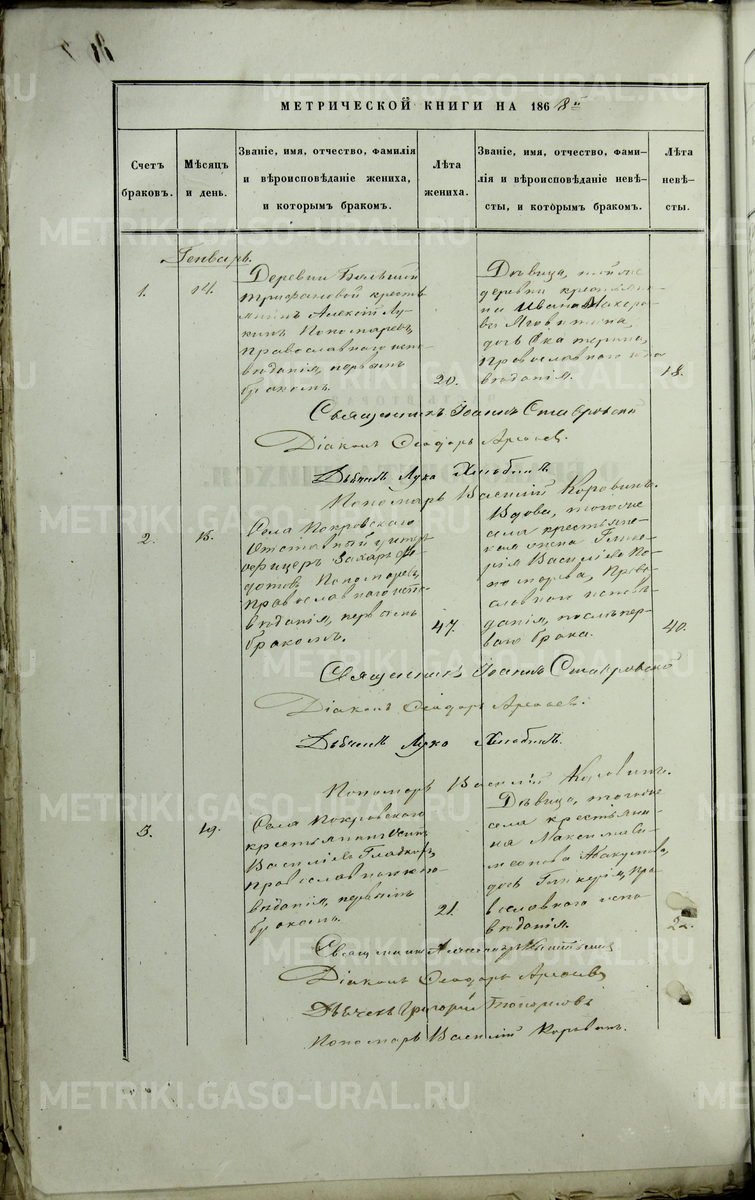 МЕТРИЧЕСКОЙ КНИГИ НА 1868 й
Счетъ
браковъ.
Мѣсяцъ
и день.
Званіе, имя, отчество, фамилія
и вѣроисповѣданіе жениха,
и которымъ бракомъ.
Лѣта
жениха.
Званіе, имя, отчество, фами-
лія и вѣроисповѣданіе невѣ-
сты, и которымъ бракомъ.
Лѣта
невѣ-
сты.
Генварь.
1.
14.
Деревни
Трифановой кресть
янинъ Алексій Лу-
кинъ Пономаревъ,
Православнаго испо-
вѣданія, первымъ
бракомъ.
20.
Дѣвица, той же
деревни крестьяни-
на Ивана Макаро-
ва
дочь Екатерина,
Православнаго испо
вѣданія.
18.
Священникъ Іоаннъ Ставровскій
Діаконъ Ѳеодоръ
Дьячекъ Лука Хлебинъ
Пономарь Василій Коровинъ.
2.
15.
Села Покровскаго
Отставный унтеръ
офицеръ Захаръ Ѳе-
дотовъ Пономаревъ,
Православнаго испо-
вѣданія, первымъ
бракомъ.
47.
Вдова, того же
села крестьянс-
кая жена Глике-
рія Васильева По-
номарева, Право-
славнаго исповѣ-
данія, послѣ пер-
ваго брака.
40.
Священникъ Іоаннъ Ставровскій
Діаконъ Ѳеодоръ
Дьячекъ Лука Хлебинъ.
Пономарь Василій Коровинъ.
3.
19.
Села Покровскаго
крестьянинъ Осипъ
Васильевъ Гладкихъ,
православнаго испо-
вѣданія, первымъ
бракомъ.
21.
Дѣвица, того же
села крестьяни-
на Максима
Абакумова,
дочь Гликерія, Пра-
вославнаго испо
вѣданія.
22.
Священникъ Александръ
Діаконъ Ѳеодоръ
Дьячекъ Григорій Топорковъ
Пономарь Василій Коровинъ.
METRIKI.GASO-URAL.RU